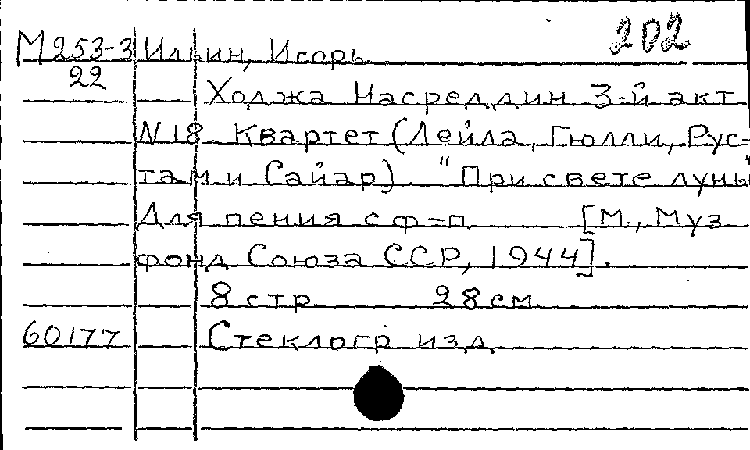 202
М253-3 Ильин, Игорь
22
Ходжа Насреддин 3-й акт
N 18 Квартет (Лейла, Гюлли, Рус-
там и Сайар) "При свете луны"
Для пения с ф=п. [М., Муз
фонд Союза ССР, 1944].
8 стр 28 см
60177 Стеклогр изд